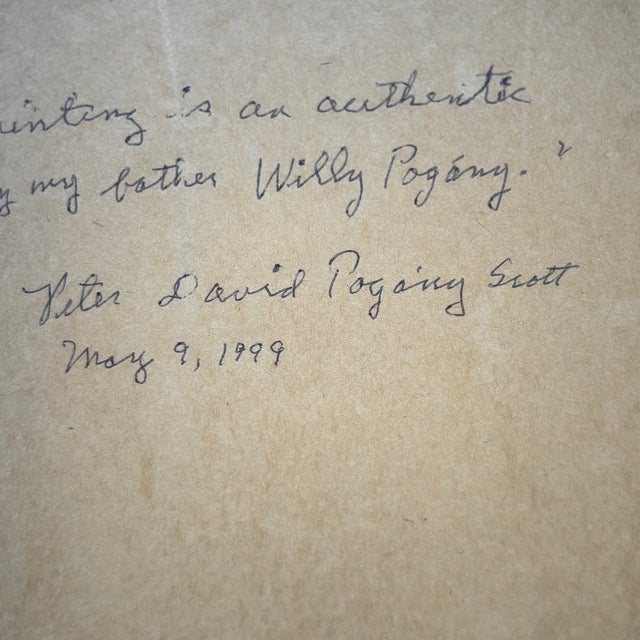 ainting is an authentic
y my father Willy Pogány."
Peter David Pogány Scott
May 9, 1999